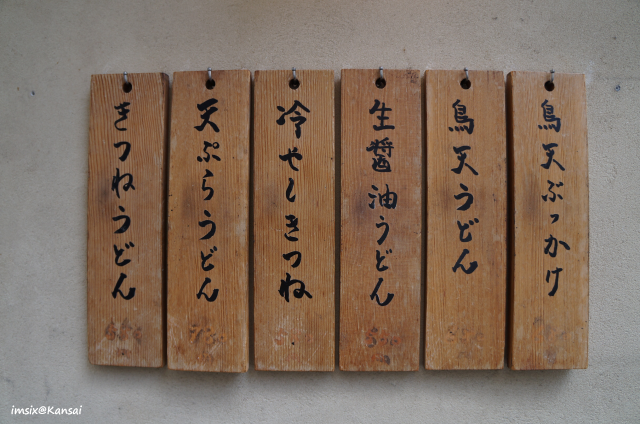 鳥天ぶっかけ
鳥天うどん
生醤油うどん
冷やしきつね
天ぷらうどん
きつねうどん
imsix@Kansai